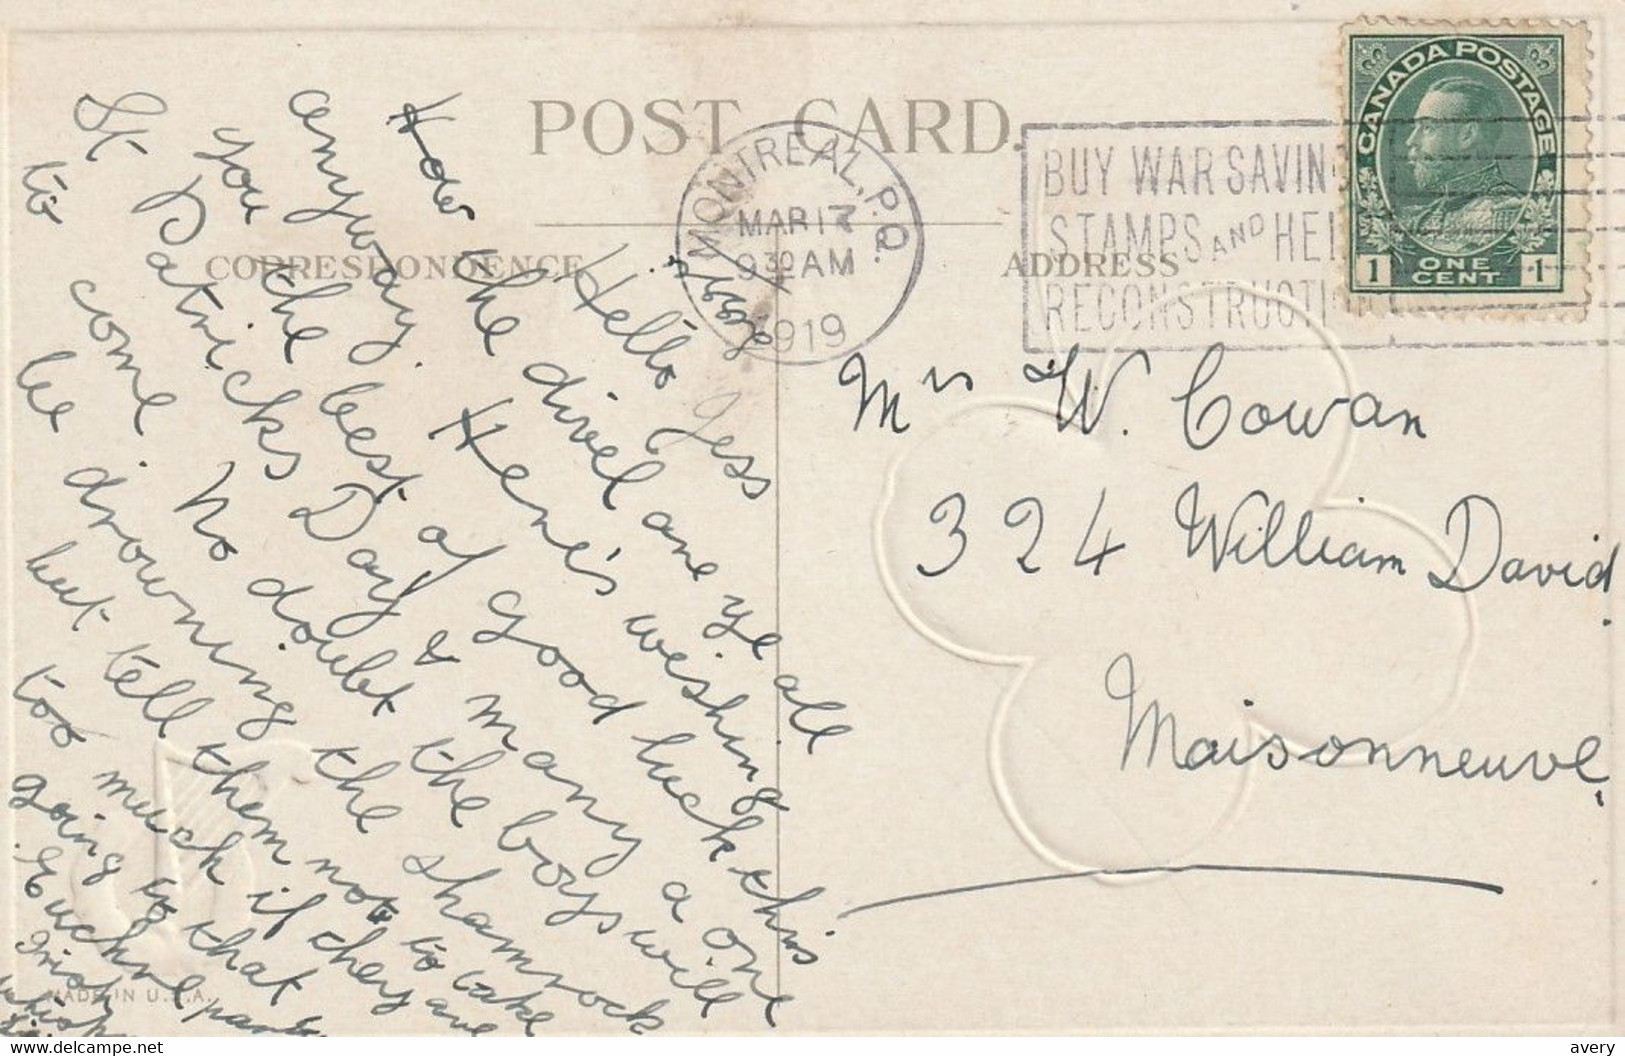 POST CARD.
CORRESPONDENCE
ADDRESS
MONTREAL, P.Q.
MAR 17
9 30 AM
1919
BUY WAR SAVIN
STAMPS AND HEL
RECONSTRUCTI
CANADA POSTAGE
1 ONE CENT 1
Hello Jess
How the divel are ye all
anyway. Here's wishing
you the best of good luck this
St. Patricks Day & many a one
to come. No doubt the boys will
be drowning the shamrock
but tell them not to take
too much if they are
going to that
Euchre party
Irish
Mrs W. Cowan
324 William David.
Maisonneuve.
MADE IN U.S.A.
delcampe.net
avery